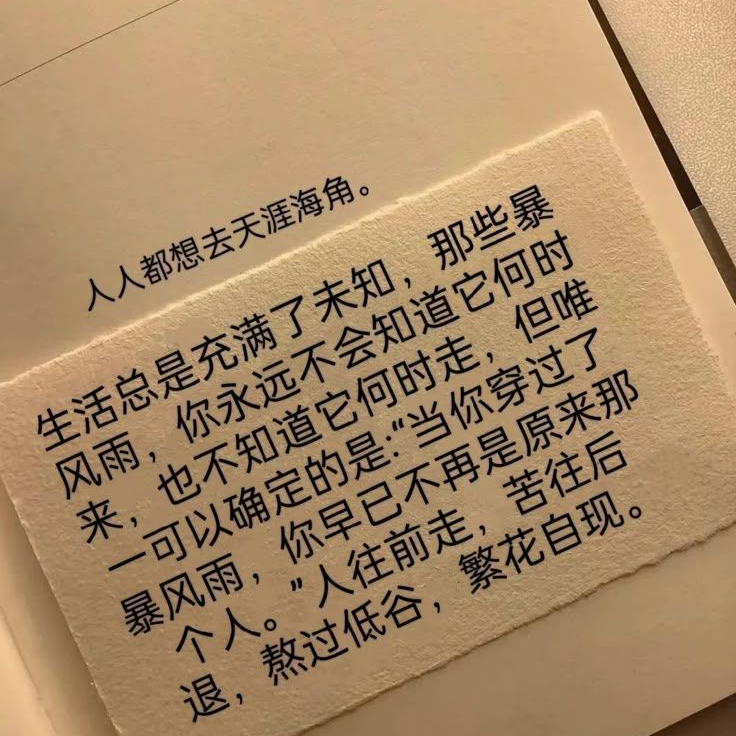 人人都想去天涯海角。
生活总是充满了未知，那些暴
风雨，你永远不会知道它何时
来，也不知道它何时走，但唯
一可以确定的是:“当你穿过了
暴风雨，你早已不再是原来那
个人。”人往前走，苦往后
退，熬过低谷，繁花自现。